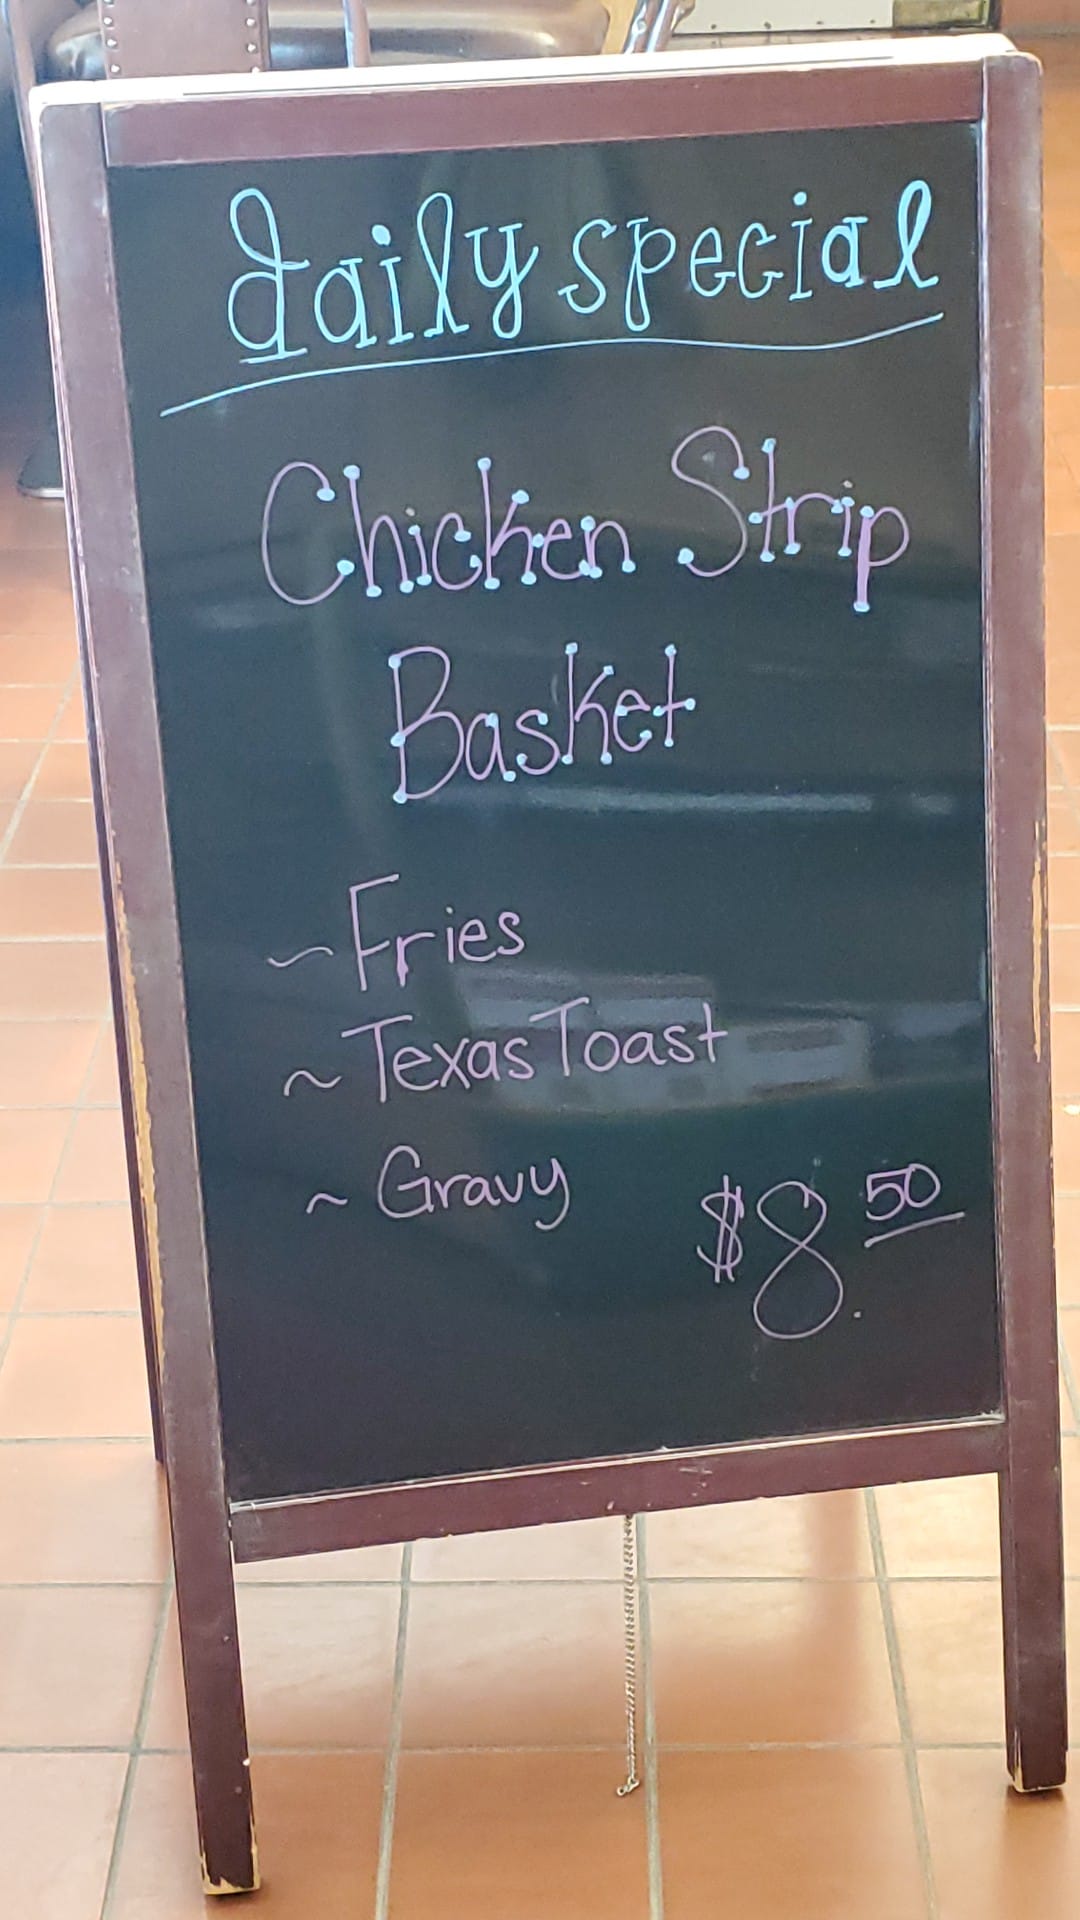 daily special
Chicken Strip
Basket
~ Fries
~ Texas Toast
~ Gravy
$8.50